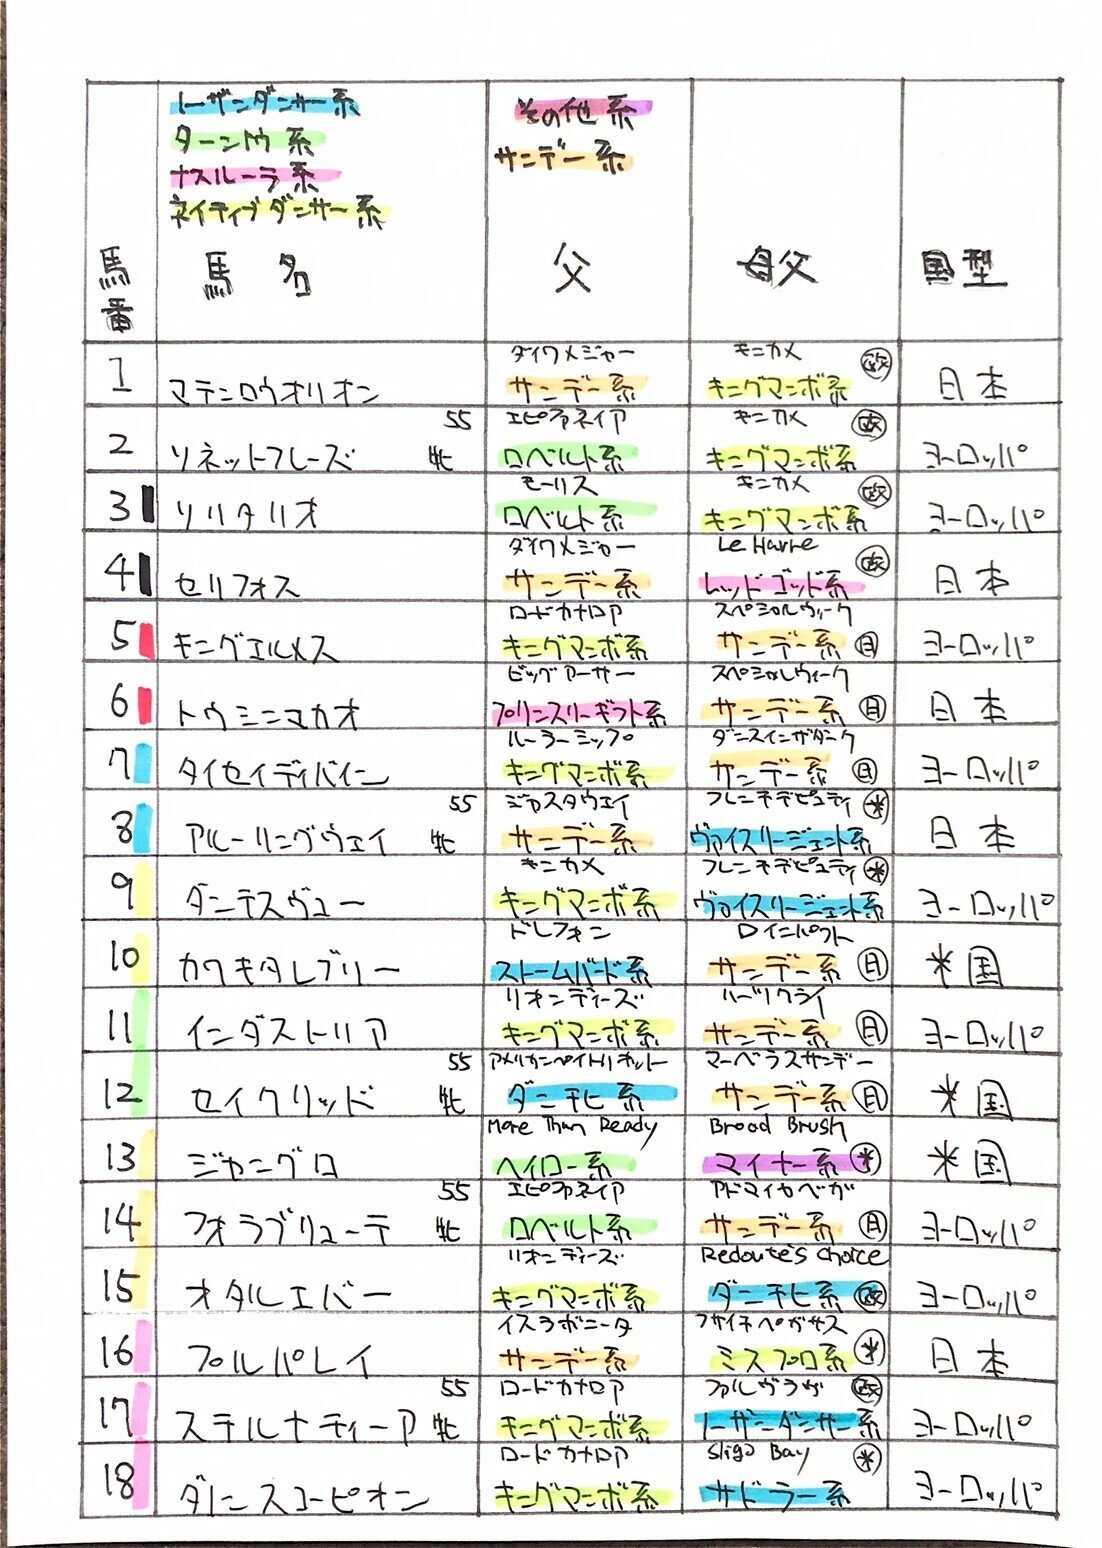 ノーザンダンサー系
ターントゥ系
ナスルーラ系
ネイティブダンサー系
その他系
サンデー系
馬番 馬名 父 母父 国型
1 マテンロウオリオン ダイワメジャー サンデー系 キンカメ キングマンボ系 欧 日本
2 ソネットフレーズ 55 牝 エピファネイア ロベルト系 キンカメ キングマンボ系 欧 ヨーロッパ
3 ソリタリオ モーリス ロベルト系 キンカメ キングマンボ系 欧 ヨーロッパ
4 セリフォス ダイワメジャー サンデー系 Le Havre レッドゴッド系 欧 日本
5 キングエルメス ロードカナロア キングマンボ系 スペシャルウィーク サンデー系 日 ヨーロッパ
6 トウシンマカオ ビッグアーサー プリンスリーギフト系 スペシャルウィーク サンデー系 日 日本
7 タイセイディバイン ルーラーシップ キングマンボ系 ダンスインザダーク サンデー系 日 ヨーロッパ
8 アルーリングウェイ 55 牝 ジャスタウェイ サンデー系 フレンチデピュティ ヴァイスリージェント系 米 日本
9 ダンテスヴュー キンカメ キングマンボ系 フレンチデピュティ ヴァイスリージェント系 米 ヨーロッパ
10 カワキタレブリー ドレフォン ストームバード系 ロインパクト サンデー系 日 米国
11 インダストリア リオンディーズ キングマンボ系 ハーツクライ サンデー系 日 ヨーロッパ
12 セイクリッド 55 牝 アメリカンペイトリオット ダンチヒ系 マーベラスサンデー サンデー系 日 米国
13 ジャングロ More Than Ready ヘイロー系 Broad Brush マイナー系 米 米国
14 フォラブリューテ 55 牝 エピファネイア ロベルト系 アドマイヤベガ サンデー系 日 ヨーロッパ
15 オタルエバー リオンディーズ キングマンボ系 Redoute's Choice ダンチヒ系 欧 ヨーロッパ
16 プルパレイ イスラボニータ サンデー系 フサイチペガサス ミスプロ系 米 日本
17 ステルナティーア 55 牝 ロードカナロア キングマンボ系 ファルヴラヴ ノーザンダンサー系 欧 ヨーロッパ
18 ダノンスコーピオン ロードカナロア キングマンボ系 Sligo Bay サドラー系 米 ヨーロッパ